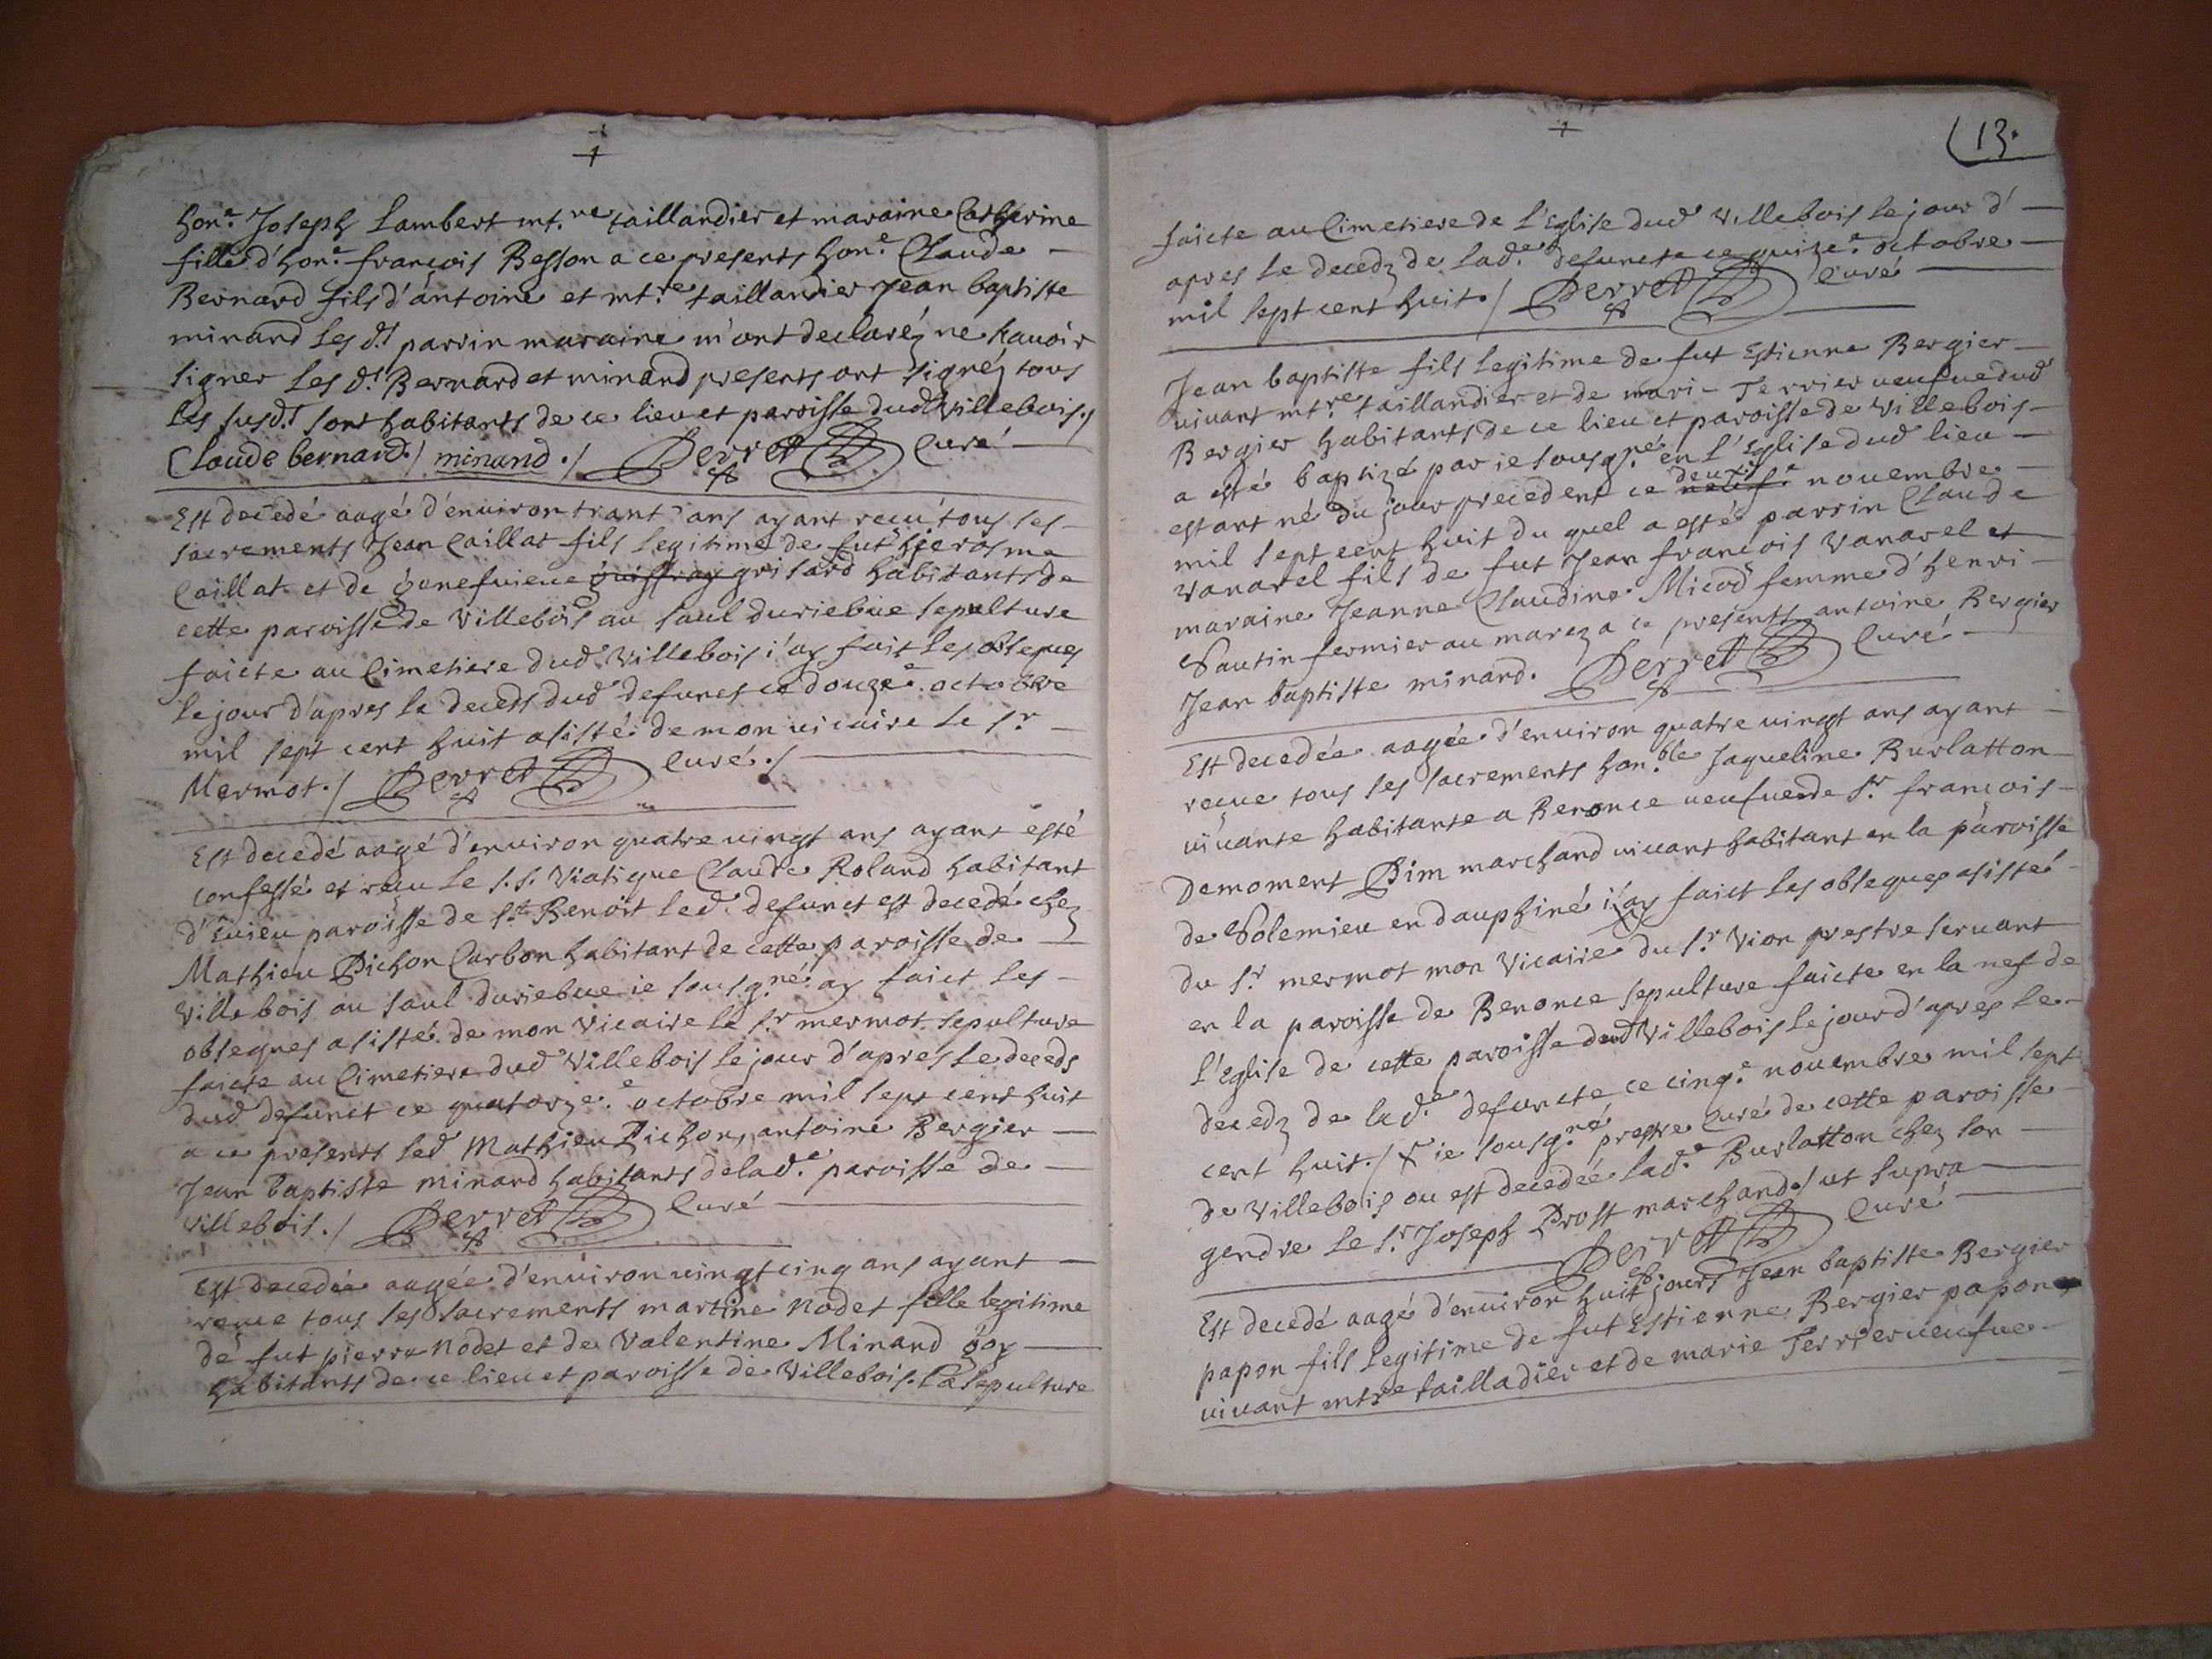 hon.e Joseph Lambert mt.re taillandier et maraine Catherine
fille d'hon.e françois Besson a ce presents hon.e Claude
Bernard fils d'antoine et mt.re taillandier Jean baptiste
minard les d.t parrin maraine m'ont declaréz ne scauoir
signer les d.t Bernard et minard presents ont signéz tous
les susd.t sont habitants de ce lieu et paroisse dud Villebois./
Claude bernard./ minand./ Perret Curé
Est decedé aagé d'enuiron trant ans ayant recu tous ses
sacrements Jean Caillat fils legitime de fut hierosme
Caillat et de genefuieue guiffray grisard habitants de
cette paroisse de Villebois au saul duriebue sepulture
faicte au Cimetiere dud Villebois i'ay fait les obseques
le jour d'apres le decets dud defunct ce douze.e octobre
mil sept cent huit asisté de mon vicaire le s.r
Mermot./ Perret Curé./
Est decedé aagé d'enuiron quatre uingt ans ayant esté
confessé et recu le s.s. Viatique Claude Roland habitant
d'Euieu paroisse de s.t Benoit led. defunct est decedé chez
Mathieu Pichon Carbon habitant de cette paroisse de
Villebois au saul duriebue ie sousg.né ay faict les
obseques asisté de mon Vicaire le s.r mermot sepulture
faicte au Cimetiere dud Villebois le jour d'apres le deceds
dud defunct ce quatorze.e octobre mil sept cent huit
a ce presents led Mathieu Pichon, antoine Bergier
Jean baptiste minard habitants de lad.e paroisse de
Villebois./ Perret Curé
Est decedée aagée d'enuiron uingt cinq ans ayant
receue tous les sacrements martine nodet fille legitime
de fut pierre nodet et de Valentine Minand goy
habitants de ce lieu et paroisse de Villebois. La sepulture
13.
faicte au Cimetiere de l'Eglise dud Villebois le jour d'
apres le decedz de lad.e defuncte ce quize.e octobre
mil sept cent huit./ Perret Curé
Jean baptiste fils legitime de fut Estienne Bergier
uiuant mt.re taillandier et de mari- Terrier ueufue dud
Bergier habitants de ce lieu et paroisse de Villebois
a esté baptizé par ie sousg.né en l'Eglise dud lieu
estant né du jour precedent ce neuf.e deuxi novembre
mil sept cent huit du quel a esté parrin Claude
Vanarel fils de fut Jean françois Vanarel et
maraine Jeanne Claudine Micod femme d'henri
Pautin fermier au marez a ce presents antoine Bergier
Jean baptiste minard. Perret Curé
Est decedée aagée d'enuiron quatre uingt ans ayant
reçue tous les sacrements hon.ble Jaqueline Burlatton
uiuante habitante a Benonce ueufue de s.r françois
Demoment Pim marchand uiuant habitant en la paroisse
de Solemieu en dauphiné i'ay faict les obseques asisté
du s.r mermot mon Vicaire du s.r Vion prestre seruant
en la paroisse de Benonce sepulture faicte en la nef de
l'Eglise de cette paroisse dud Villebois le jour d'apres le
decedz de lad.e defuncte ce cinq.e nouembre mil sept
cent huit./ ie sousg.né prestre Curé de cette paroisse
de Villebois ou est decedée lad.e Burlatton chez son
gendre le s.r Joseph Prost marchand./ ut supra
Perret Curé
Est decedé aagé d'enuiron huit jours Jean baptiste Bergier
papon fils legitime de fut Estienne Bergier papon
uiuant mtre tailladier et de marie Terrier ueufue